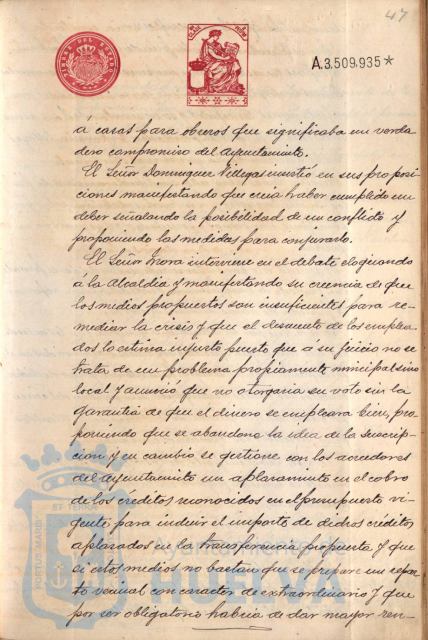 47
TIMBRE DEL ESTADO
A.3.509.935*
á casas para obreros que significaba un verda
dero compromiso del Ayuntamiento.
El Señor Dominguez Villegas insistió en sus proposi
ciones manifestando que creia haber cumplido un
deber señalando la posibilidad de un conflicto y
proponiendo las medidas para conjurarlo.
El Señor Mora interviene en el debate elogiando
á la Alcaldia y manifestando su creencia de que
los medios propuestos son insuficientes para re-
mediar la crisis y que el descuento de los emplea
dos lo estima injusto puesto que á su juicio no se
trata de un problema propiamente municipal sino
local y anunció que no otorgaria su voto sin la
garantía de que el dinero se empleara bien, pro
poniendo que se abandone la idea de la suscrip-
cion y en cambio se gestione con los acreedores
del Ayuntamiento un aplazamiento en el cobro
de los creditos reconocidos en el presupuesto vi-
gente para incluir el importe de dichos créditos
aplazados en la transferencia propuesta y que
si estos medios no bastan que se prepare un repar
to vecinal con caracter de extraordinario y que
por ser obligatorio habria de dar mayor ren-
PORTUS MARIS ET TERRAE
Ayuntamiento de
HUELVA